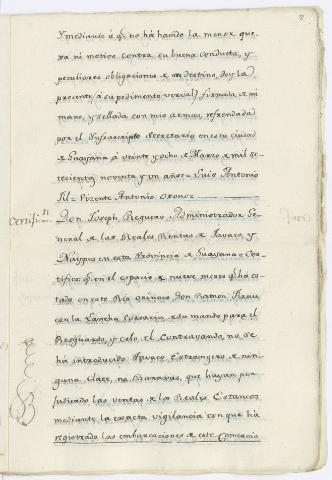 2
Y mediante á q.e no há havido la menor que-
xa ni motivo contra su buena conducta, y
peculiares obligaciones de su destino, doy la
presente (á su pedimento verval) firmada de mi
mano, y sellada con mis armas, refrendada
por el Ynfrascripto Secretario en esta Ciudad
de Guayana á veinte y ocho de Marzo de mil se-
tecientos noventa y un años = Luis Antonio
Gil = Vizente Antonio Oronoz
Certific.n
Don Joseph Reguero Administrador Ge-
neral de las Reales Rentas de Tavaco, y
Naypes en esta Provincia de Guayana = Cer-
tifico: q.e en el espacio de nueve meses q.e há es-
tado en este Rio Orinoco Don Ramon
con la Lancha Corsaria de su mando para el
Resguardo, y celo del Contravando, no se
há introducido Tavaco Estrangero de nin-
guna Clase, ni Baraxas, que hayan per-
judicado las ventas de los Reales Estancos
mediante la exacta vigilancia con que há
registrado las embarcaciones de este Comercio